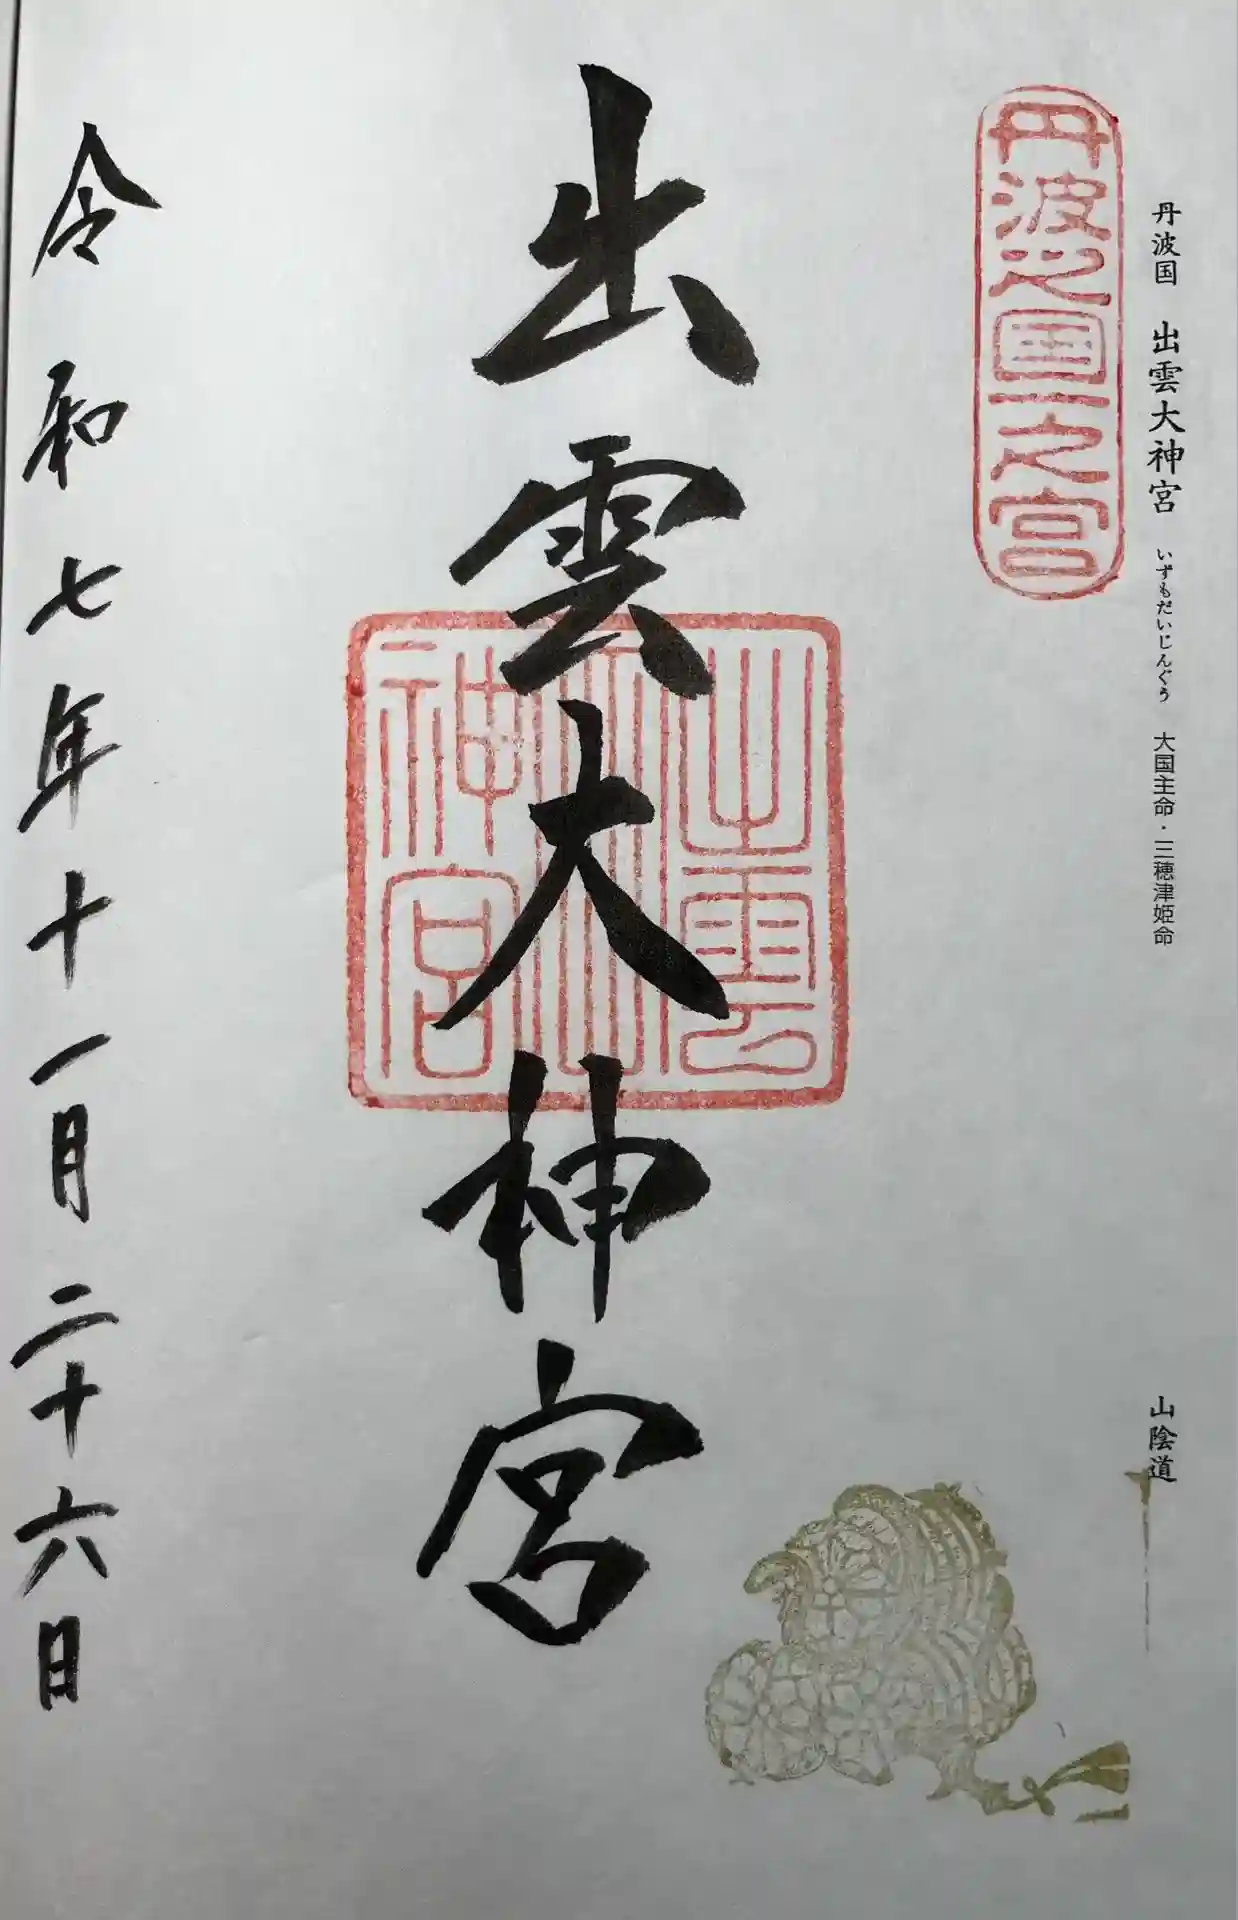 丹波国 出雲大神宮 いずもだいじんぐう 大国主命・三穂津姫命
山陰道
丹波之国一之宮
出雲大神宮
出雲
大
神宮
令和七年十一月二十六日